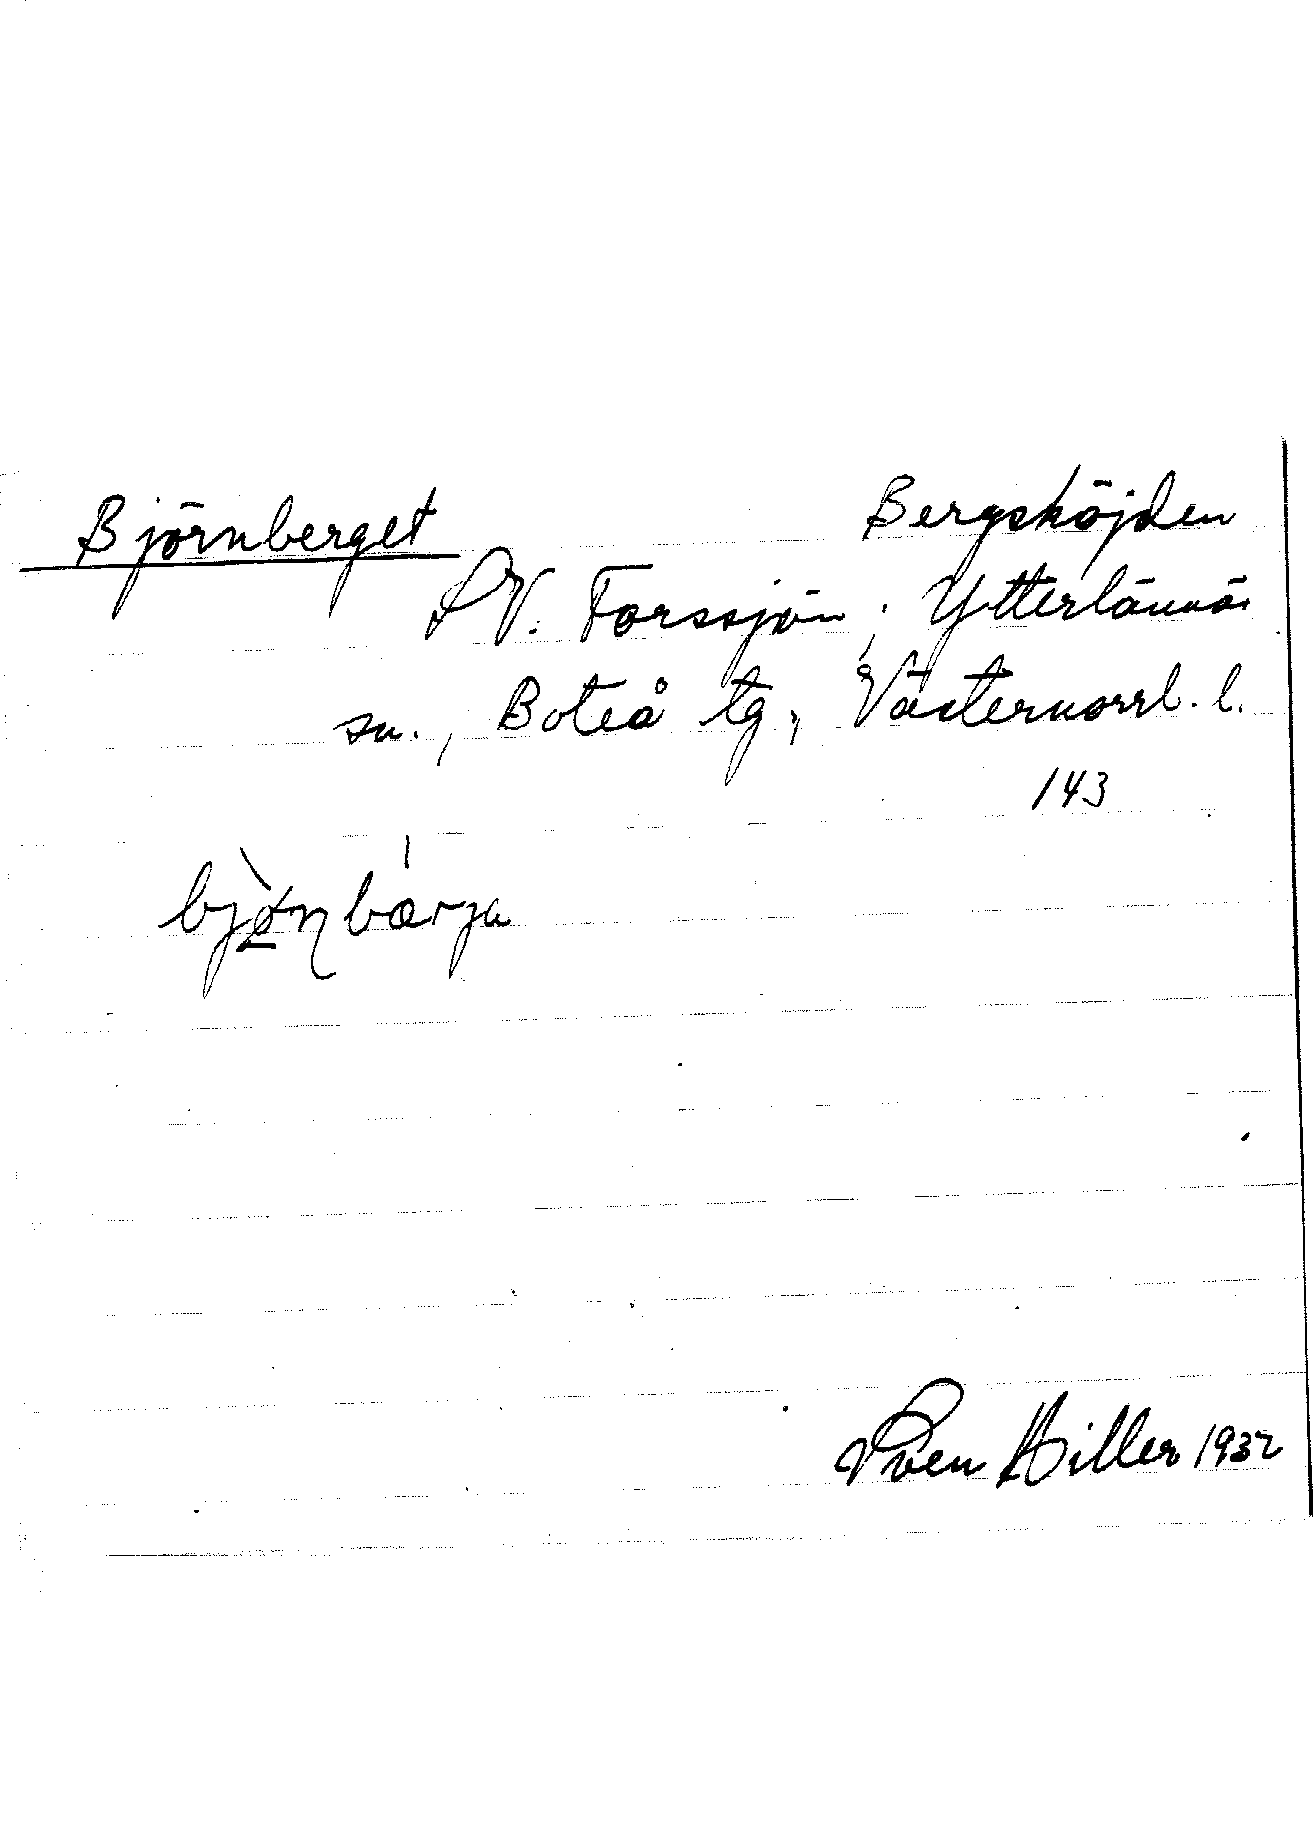 Björnberget Bergshöjden
SV. Forssjön, Ytterlännäs
sn., Boteå tg, Västernorrl. l.
143
bjø̀ɳbárja
Sven Hiller 1932